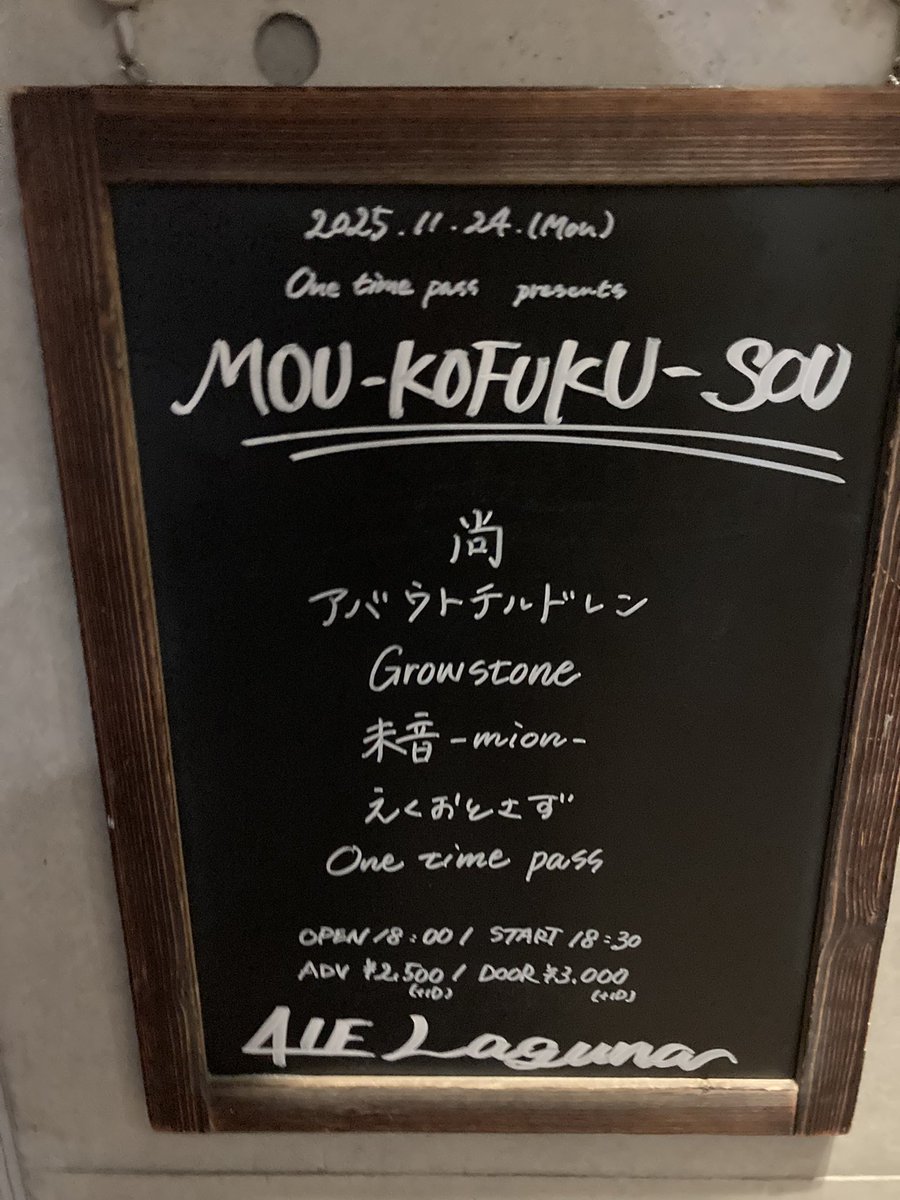 2025.11.24.(Mon)
One time pass presents
MOU-KOFUKU-SOU
尚
アバウトチルドレン
Growstone
未音-mion-
えくおとさず
One time pass
OPEN 18:00 / START 18:30
ADV ¥2,500 / DOOR ¥3,000
(+1D) (+1D)
ALE Laguna